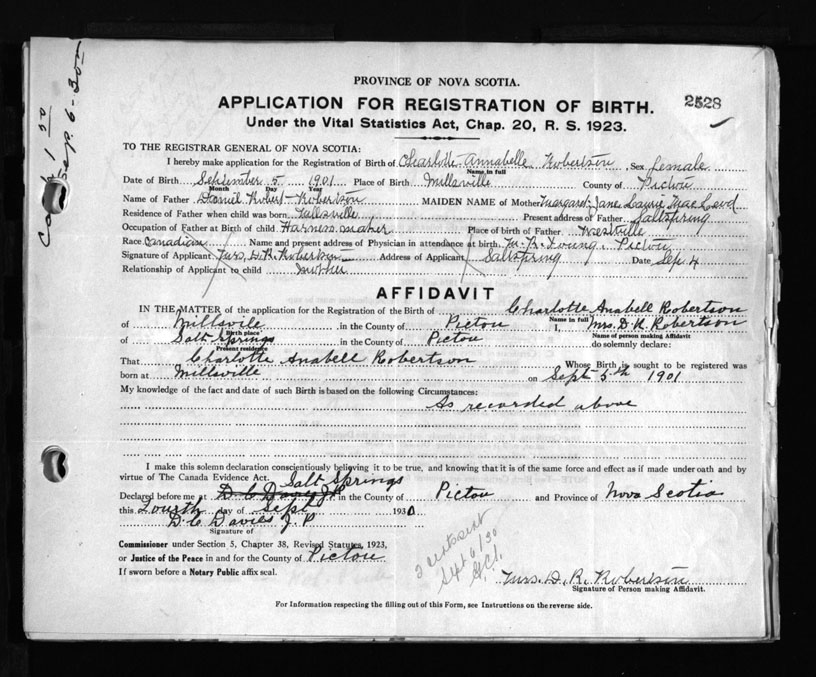 PROVINCE OF NOVA SCOTIA.
APPLICATION FOR REGISTRATION OF BIRTH. 2528
Under the Vital Statistics Act, Chap. 20, R. S. 1923.
Cash 1 50
Sep. 6-30
TO THE REGISTRAR GENERAL OF NOVA SCOTIA:
I hereby make application for the Registration of Birth of Charlotte Annabelle Robertson, Sex female
Name in full
Date of Birth September 5 1901 Place of Birth Millsville County of Pictou
Month Day Year
Name of Father Daniel Robert Robertson MAIDEN NAME of Mother Margaret Jane Laurie MacLeod
Residence of Father when child was born Present address of Father Saltspring
Occupation of Father at Birth of child Harness maker Place of birth of Father Westville
Race Canadian Name and present address of Physician in attendance at birth, M. R. Young Pictou
Signature of Applicant Mrs. D. R. Robertson Address of Applicant Saltspring Date Sep. 4
Relationship of Applicant to child mother
AFFIDAVIT
IN THE MATTER of the application for the Registration of the Birth of Charlotte Anabell Robertson
Name in full
of Millsville in the County of Pictou I, Mrs. D. R. Robertson
Birth place Name of person making Affidavit
of Salt Springs in the County of Pictou do solemnly declare:
Present residence
That Charlotte Anabell Robertson Whose Birth is sought to be registered was
born at Millsville on Sept 5th 1901
My knowledge of the fact and date of such Birth is based on the following Circumstances:
As recorded above
I make this solemn declaration conscientiously believing it to be true, and knowing that it is of the same force and effect as if made under oath and by
virtue of The Canada Evidence Act. Salt Springs
Declared before me at D. C. Davies J.P. in the County of Pictou and Province of Nova Scotia
this Fourth day of Sept 1930
D. C. Davies J. P.
Signature of
Commissioner under Section 5, Chapter 38, Revised Statutes, 1923,
or Justice of the Peace in and for the County of Pictou
If sworn before a Notary Public affix seal.
Sept 6/30
Mrs. D. R. Robertson
Signature of Person making Affidavit.
For Information respecting the filling out of this Form, see Instructions on the reverse side.